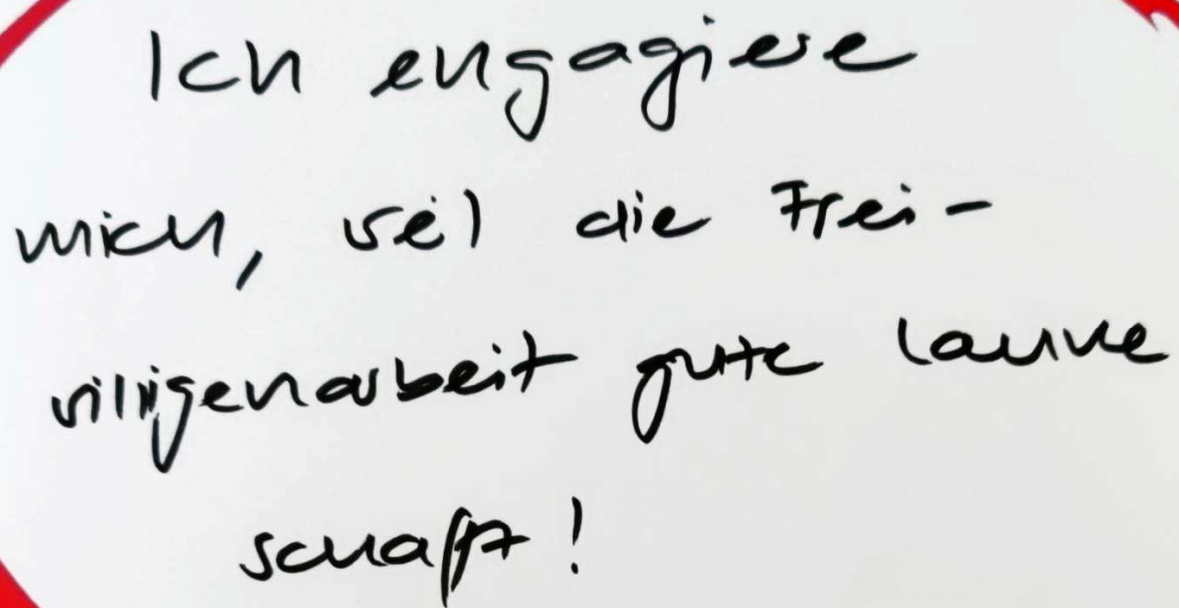 Ich engagiere
mich, weil die Frei-
willigenarbeit gute Laune
schafft!